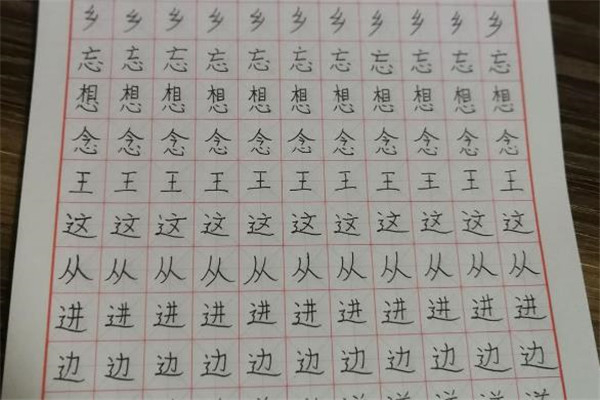 乡乡乡乡乡乡乡乡乡乡乡
忘忘忘忘忘忘忘忘忘忘忘
想想想想想想想想想想想
念念念念念念念念念念念
王王王王王王王王王王王
这这这这这这这这这这这
从从从从从从从从从从从
进进进进进进进进进进进
边边边边边边边边边边边